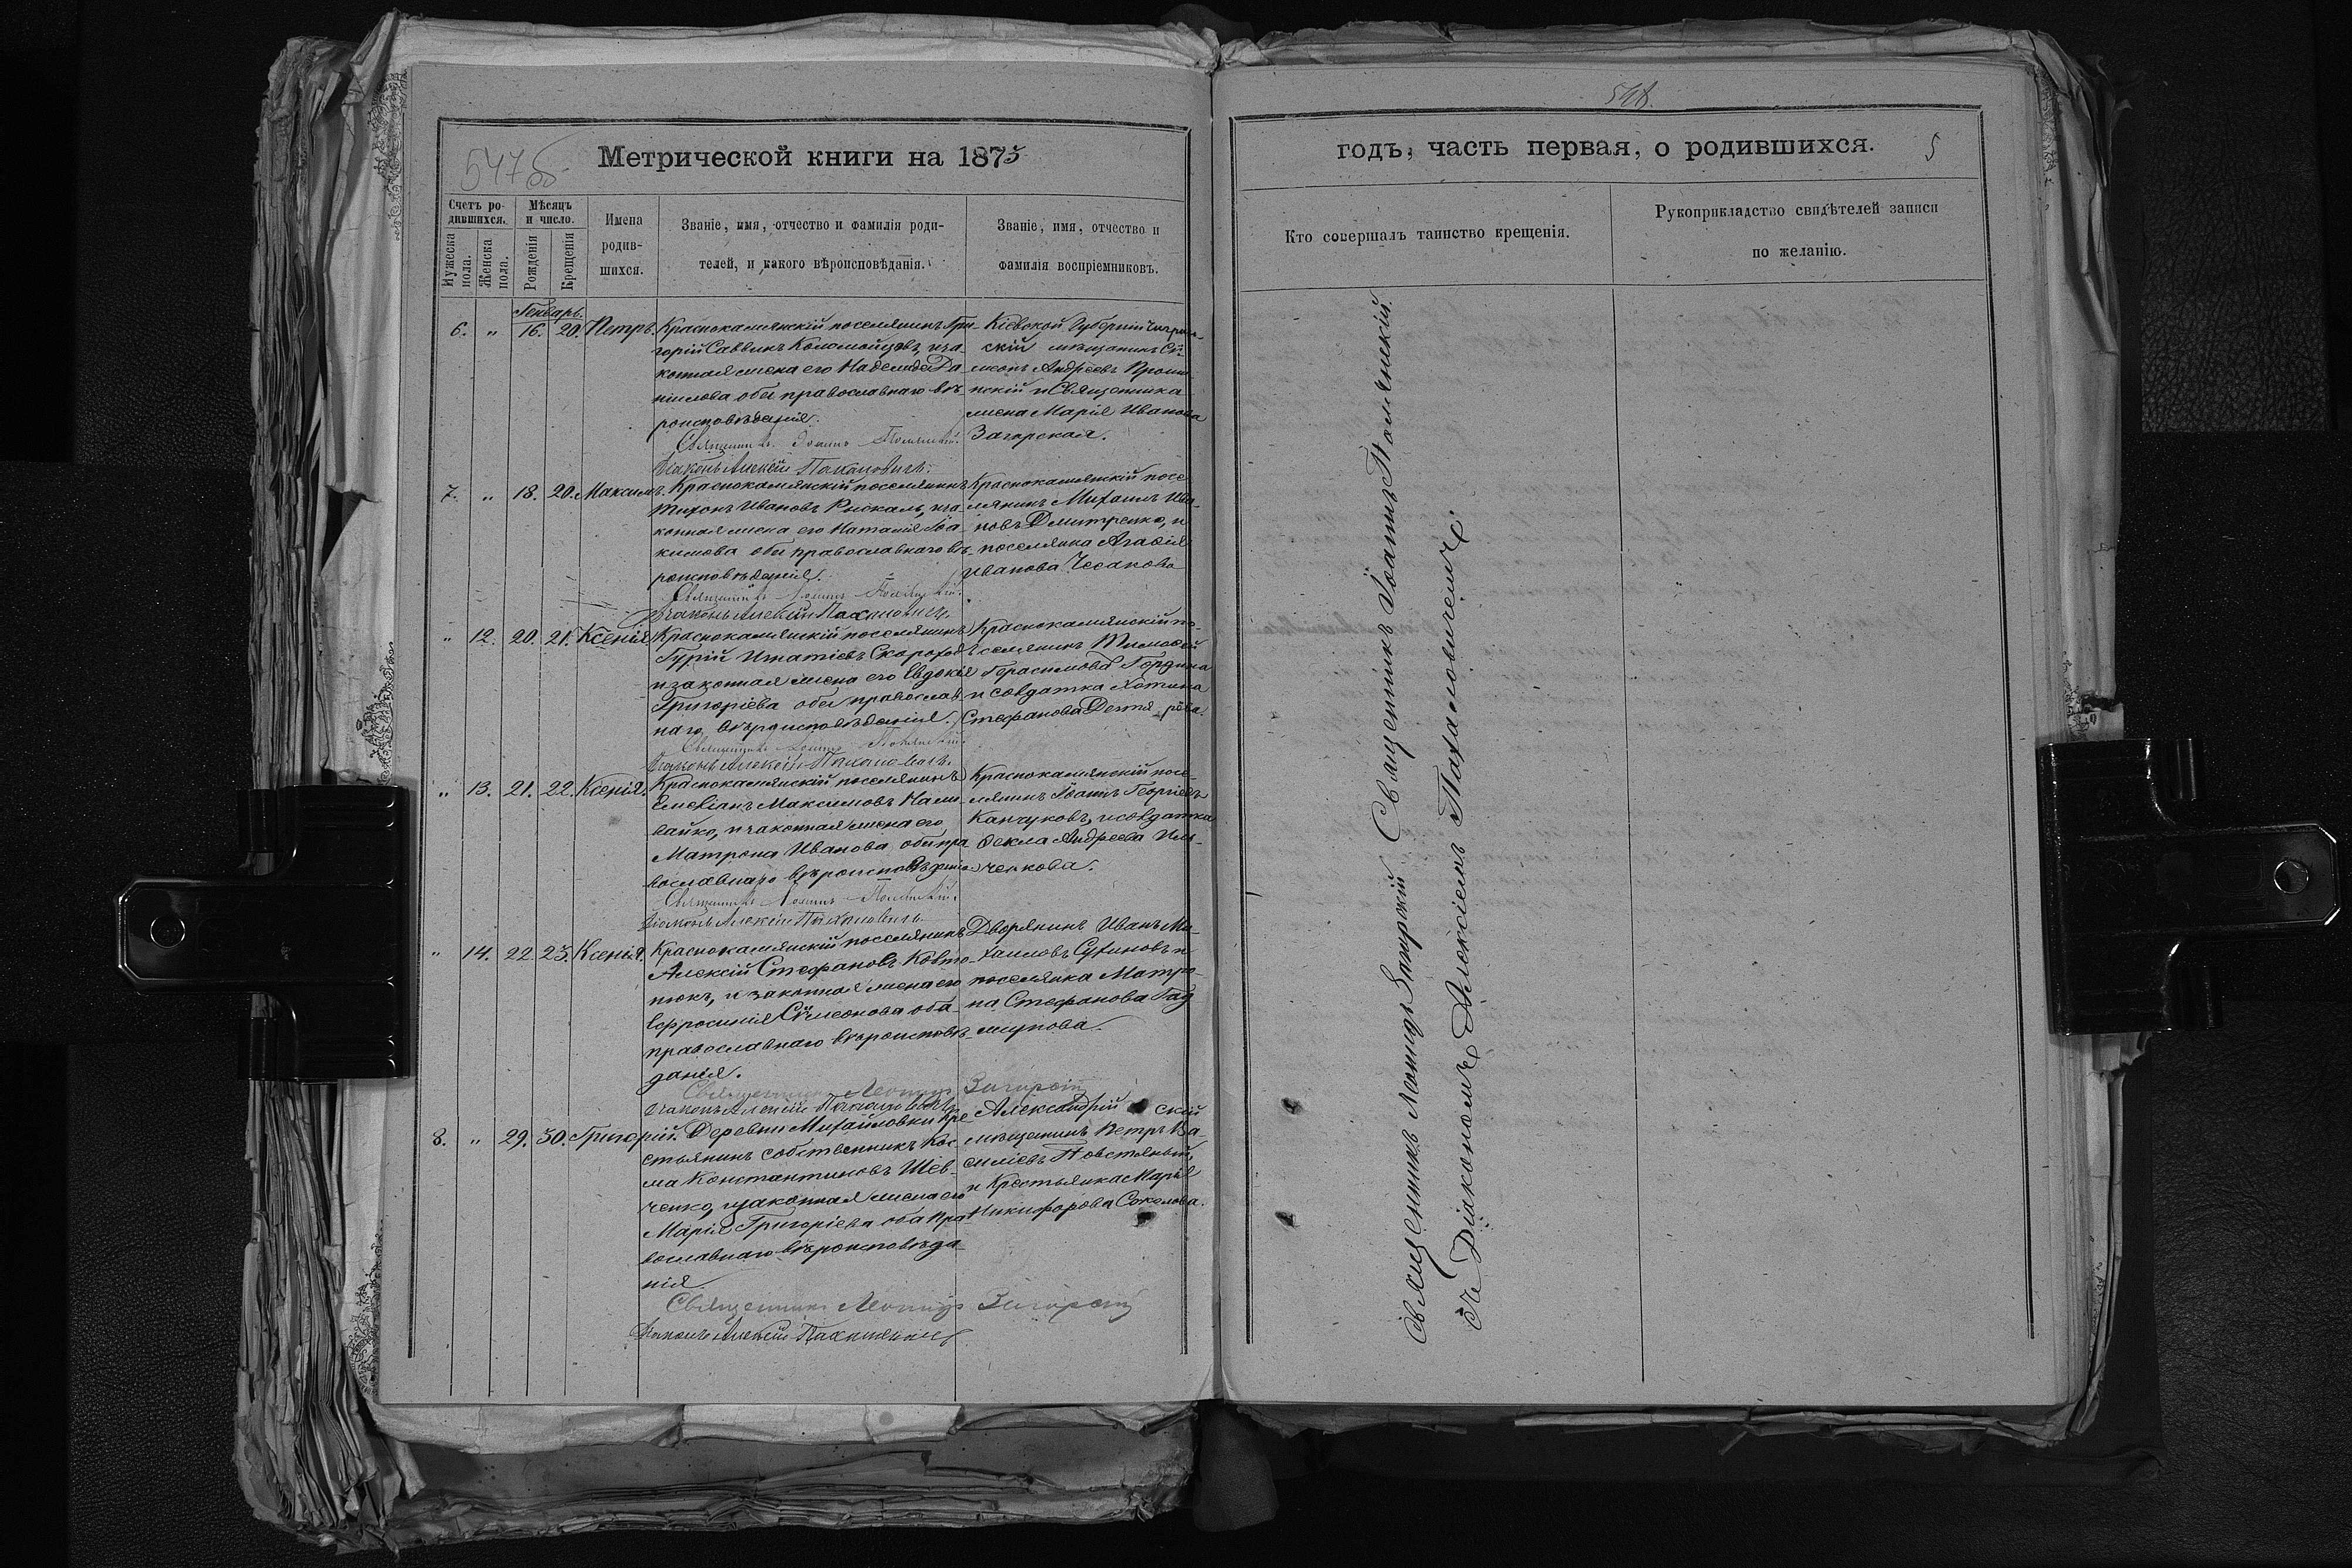 547об
Метрической книги на 1875
Счетъ ро-
дившихся.
Мѣсяцъ
и число.
Имена
родив-
шихся.
Званіе, имя, отчество и фамилія роди-
телей, и какого вѣроисповѣданія.
Званіе, имя, отчество и
фамилія воспріемниковъ.
Мужеска
пола.
Женска
пола.
Рожденія
Крещенія
Генварь.
6. " 16. 20. Петръ.
Краснокамянскій поселянинъ Гри-
горій Саввинъ Коломойцовъ, и за-
конная жена его Надежда Да-
ніилова оба православнаго вѣ-
роисповѣданія.
Священникъ Іоаннъ Полянскій.
Діаконъ Алексій Пахаловичъ.
Кіевской Губерніи Чигрин-
скій мѣщанинъ Сѵ-
меонъ Андреевъ
и Священника
жена Марія Иванова
Загорская.
7. " 18. 20. Максимъ.
Краснокамянскій поселянинъ
Тихонъ Ивановъ Рискаль, и за-
конная жена его Наталія Іоа-
кимова оба православнаго вѣ-
роисповѣданія.
Священникъ Іоаннъ Полянскій.
Діаконъ Алексій Пахаловичъ.
Краснокамянскій посе-
лянинъ Михаилъ Ива-
новъ Дмитренко, и
поселянка Агафія
Иванова Чесакова
" 12. 20. 21. Ксенія
Краснокамянскій поселянинъ
Гурій Игнатіевъ Скороход
и законная жена его Евдокія
Григоріева оба православ-
наго вѣроисповѣданія.
Священникъ Іоаннъ Полянскій.
Діаконъ Алексій Пахаловичъ.
Краснокамянскій по-
селянинъ Тимофей
Герасимовъ
и солдатка
Стефанова
" 13. 21. 22. Ксенія.
Краснокамянскій поселянинъ
Емеліанъ Максимовъ Нали-
вайко, и законная жена его
Матрона Иванова, оба пра-
вославнаго вѣроисповѣданія
Священникъ Іоаннъ Полянскій.
Діаконъ Алексій Пахаловичъ.
Краснокамянскій посе-
лянинъ Іоаннъ Георгіевъ
Канчуковъ, и солдатка
Фекла Андреева Иль-
ченкова.
" 14. 22. 23. Ксенія.
Краснокамянскій поселянинъ
Алексій Стефановъ Ковто-
нюкъ, и законная жена его
Евфросинія Сѵмеонова оба
православнаго вѣроисповѣ-
данія.
Священникъ Леонидъ Загорскій
Діаконъ Алексій Пахаловичъ
Дворянинъ Иванъ Ми-
хаиловъ Сухиновъ и
поселянка Матро-
на Стефанова
8. " 29. 30. Григорій.
Деревни Михайловки кре-
стьянинъ собственникъ Кос-
ма Константиновъ Шев-
ченко, и законная жена его
Марія Григоріева оба пра-
вославнаго вѣроисповѣда-
нія
Священникъ Леонидъ Загорскій
Діаконъ Алексій Пахаловичъ
Александрійскій
мѣщанинъ Петръ Ва-
силіевъ
и Крестьянка Марія
Никифорова Соколова.
548.
годъ, часть первая, о родившихся.
5
Кто совершалъ таинство крещенія.
Рукоприкладство свидѣтелей записи
по желанію.
Священникъ Леонидъ Загорскій Священникъ Іоаннъ Полянскій.
съ Діакономъ Алексіемъ Пахаловичемъ.